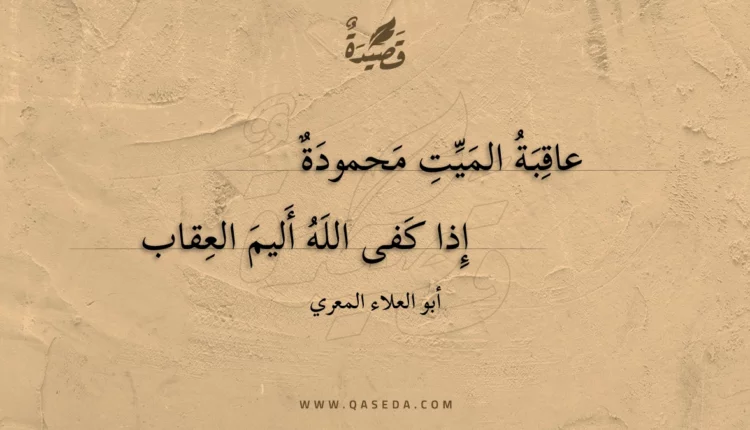 قَصِيدَةٌ
عاقِبَةُ المَيِّتِ مَحمودَةٌ
إِذا كَفى اللَهُ أَليمَ العِقاب
أبو العلاء المعري
WWW.QASEDA.COM